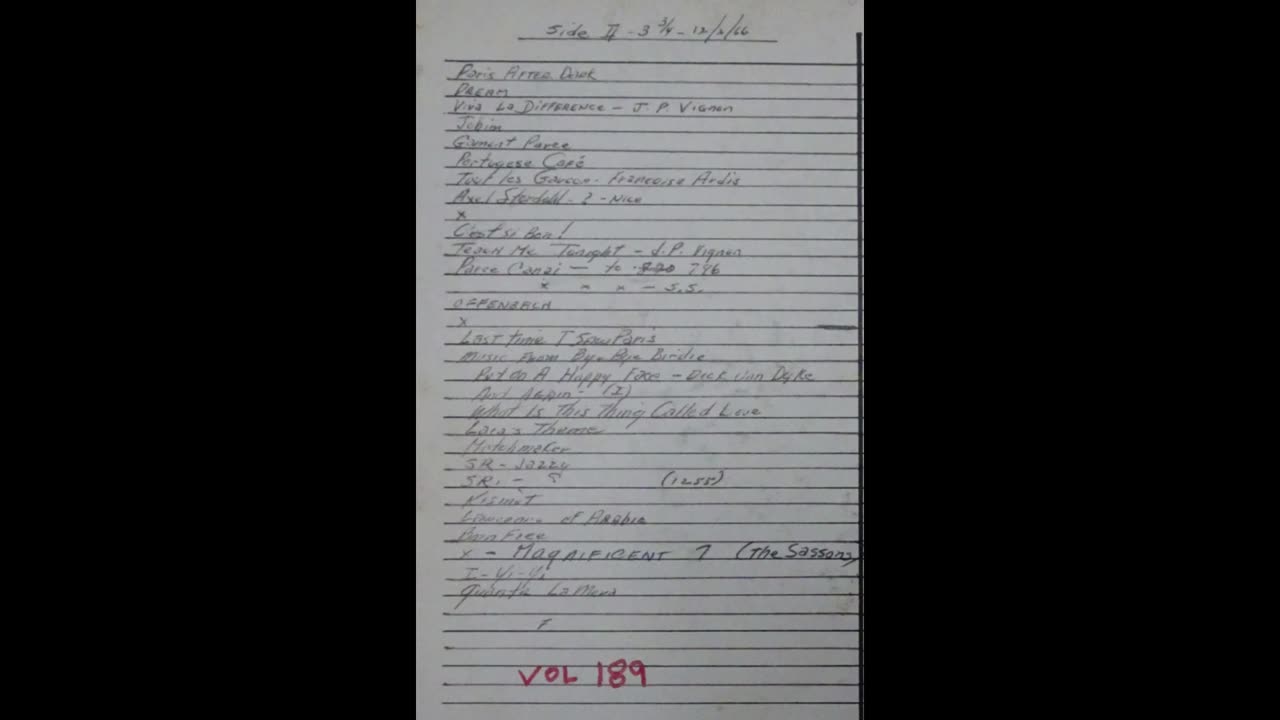 Side II - 3 3/4 - 12/2/66
Paris AFTER Dark
DREAM
Viva La DIFFERENCE - J. P. Vignon
Jobim
Portugese Café
Francoise Ardis
Axel Stordahl - ? - Nice
x
C'est si Bon!
Teach Me Tonight - J.P. Vignon
Paree Canai - to 796
x x x - S.S.
OFFENBACH
x
Last time I Saw Paris
Music From Bye Bye Birdie
Put On A Happy Face - Dick Van Dyke
And AGAIN - (I)
What Is This Thing Called Love
Lara's Theme
Matchmaker
SR - Jazzy
SR. - ? (1255)
Kismet
Lawrence of Arabia
Born Free
x - MAGNIFICENT 7 (The Sassons)
I - Yi - Yi
La Mera
VOL 189